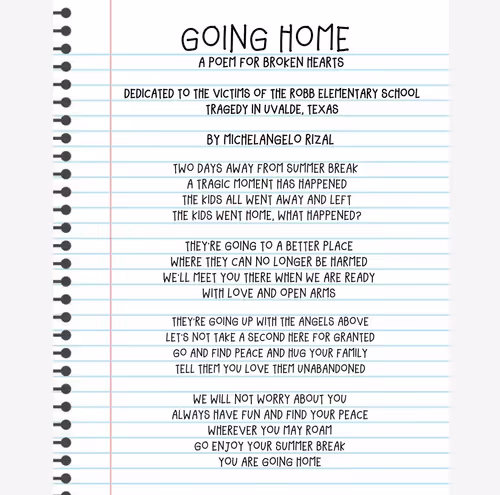 GOING HOME
A POEM FOR BROKEN HEARTS
DEDICATED TO THE VICTIMS OF THE ROBB ELEMENTARY SCHOOL
TRAGEDY IN UVALDE, TEXAS
BY MICHELANGELO RIZAL
TWO DAYS AWAY FROM SUMMER BREAK
A TRAGIC MOMENT HAS HAPPENED
THE KIDS ALL WENT AWAY AND LEFT
THE KIDS WENT HOME, WHAT HAPPENED?
THEY'RE GOING TO A BETTER PLACE
WHERE THEY CAN NO LONGER BE HARMED
WE'LL MEET YOU THERE WHEN WE ARE READY
WITH LOVE AND OPEN ARMS
THEY'RE GOING UP WITH THE ANGELS ABOVE
LET'S NOT TAKE A SECOND HERE FOR GRANTED
GO AND FIND PEACE AND HUG YOUR FAMILY
TELL THEM YOU LOVE THEM UNABANDONED
WE WILL NOT WORRY ABOUT YOU
ALWAYS HAVE FUN AND FIND YOUR PEACE
WHEREVER YOU MAY ROAM
GO ENJOY YOUR SUMMER BREAK
YOU ARE GOING HOME